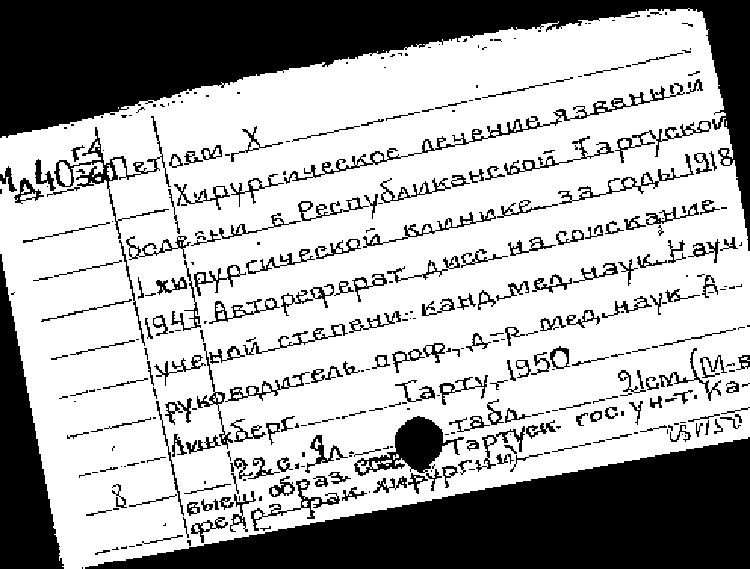 Мд 40 г-4/360 Петлем, Х
Хирургическое лечение язвенной
болезни в Республиканской Тартуской
I хирургической клинике за годы 1918
1947. Автореферат дисс. на соискание
ученой степени канд. мед. наук. Науч.
руководитель проф., д-р мед. наук А
Линкберг. Тарту, 1950.
22 с.; 1 л. табл. 21см. (М-в
8 высш. образ. Тартуск. гос. ун-т. Ка-
федра фак. хирургии)